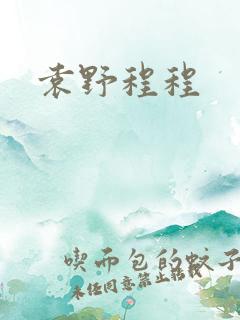 袁野程程
喫而包的蚊子
未经同意禁止转载